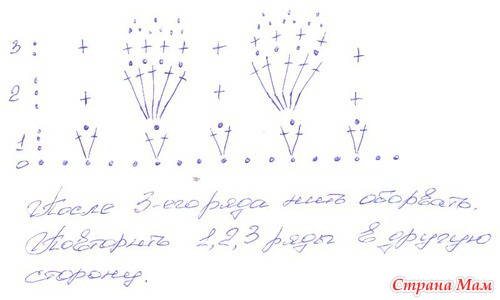 3
2
1
0
После 3-его ряда нить оборвать.
Повторить 1,2,3 ряды в другую
сторону.
Страна Мам